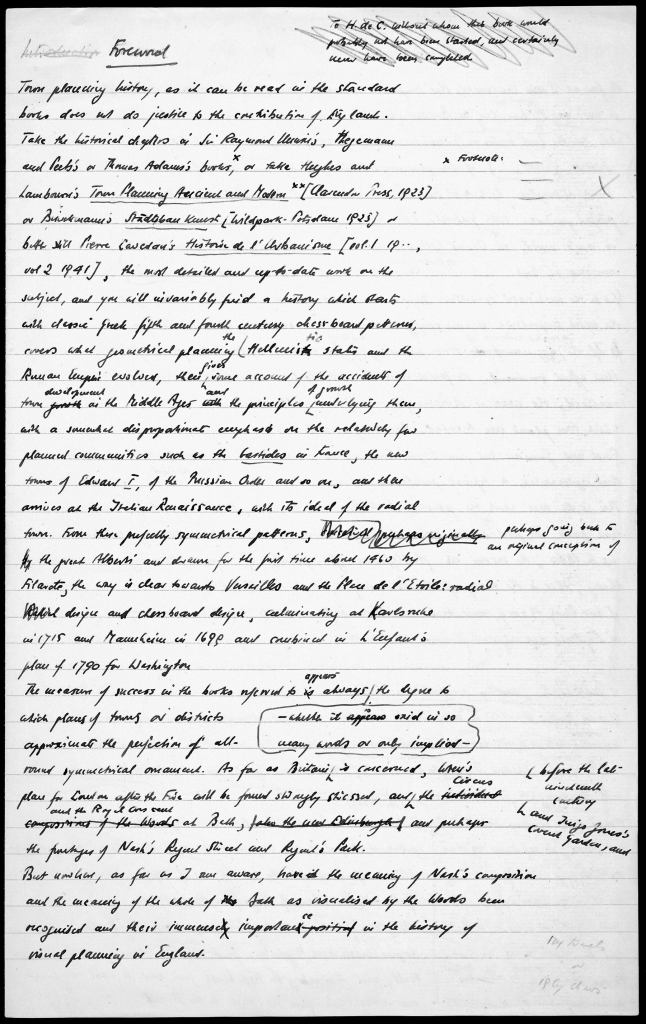 To H. de C. without whom this book would
probably not have been started, and certainly
never have been completed
Introduction Foreword
Town planning history, as it can be read in the standard
books does not do justice to the contribution of England.
Take the historical chapters in Sir Raymond Unwin's, Hegemann
and Peets's or Thomas Adams's books,x or take Hughes and
x Footnote:
Lamborn's Town Planning Ancient and Modern xx [Clarendon Press, 1923]
or Brinckmann's Stadtbaukunst [Wildpark-Potsdam 1925] or
better still Pierre Lavedan's Histoire de l'Urbanisme [vol. 1 19..,
vol 2 1941], the most detailed and up-to-date work on the
subject, and you will invariably find a history which starts
with classic Greek fifth and fourth century chessboard patterns,
covers what geometrical planning the Hellenistic States and the
Roman Empire evolved, then gives some account of the accidents of
town growth development in the Middle Ages with and the principles of growth underlying them,
with a somewhat disproportionate emphasis on the relatively few
planned communities such as the bastides in France, the new
towns of Edward I, of the Prussian Order and so on, and then
arrives at the Italian Renaissance, with its ideal of the radial
town. From these perfectly symmetrical patterns, perhaps originally perhaps going back to
an original conception of
by the great Alberti and drawn for the first time about 1460 by
Filarete, the way is clear towards Versailles and the Place de l'Etoile: radial
design and chessboard design, culminating at Karlsruhe
in 1715 and Mannheim in 1699 and combined in L'Enfant's
plan of 1790 for Washington
The measure of success in the books referred to is appears always the degree to
which plans of towns or districts
– whether it appears said in so
many words or only implied –
approximate the perfection of all-
round symmetrical ornament. As far as Britain is concerned, Wren's
before the late
nineteenth
century
plan for London after the Fire will be found strongly stressed, and the Circus
and Inigo Jones's
Covent Garden, and
and the Royal Crescent
compositions of the Woods at Bath, also the new Edinburgh and perhaps
the prestige of Nash's Regent Street and Regent's Park.
But nowhere, as far as I am aware, has the meaning of Nash's composition
and the meaning of the whole of Bath as visualised by the Woods been
recognised and their immense importance position in the history of
visual planning in England.